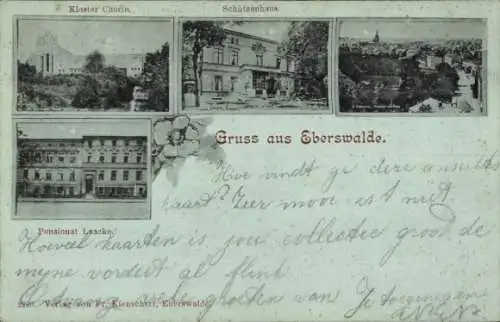 Kloster Chorin.
Schützenhaus.
Gruss aus Eberswalde.
Hoe vindt ge deze ansichts
kaart? Zeer mooi is 't niet.
Pensionat Laacke.
Hoeveel kaarten is jou collectie groot de
mijne vordert al flink
groeten van Je toegenegen
Verlag von Fr. Kienscherf, Eberswalde.